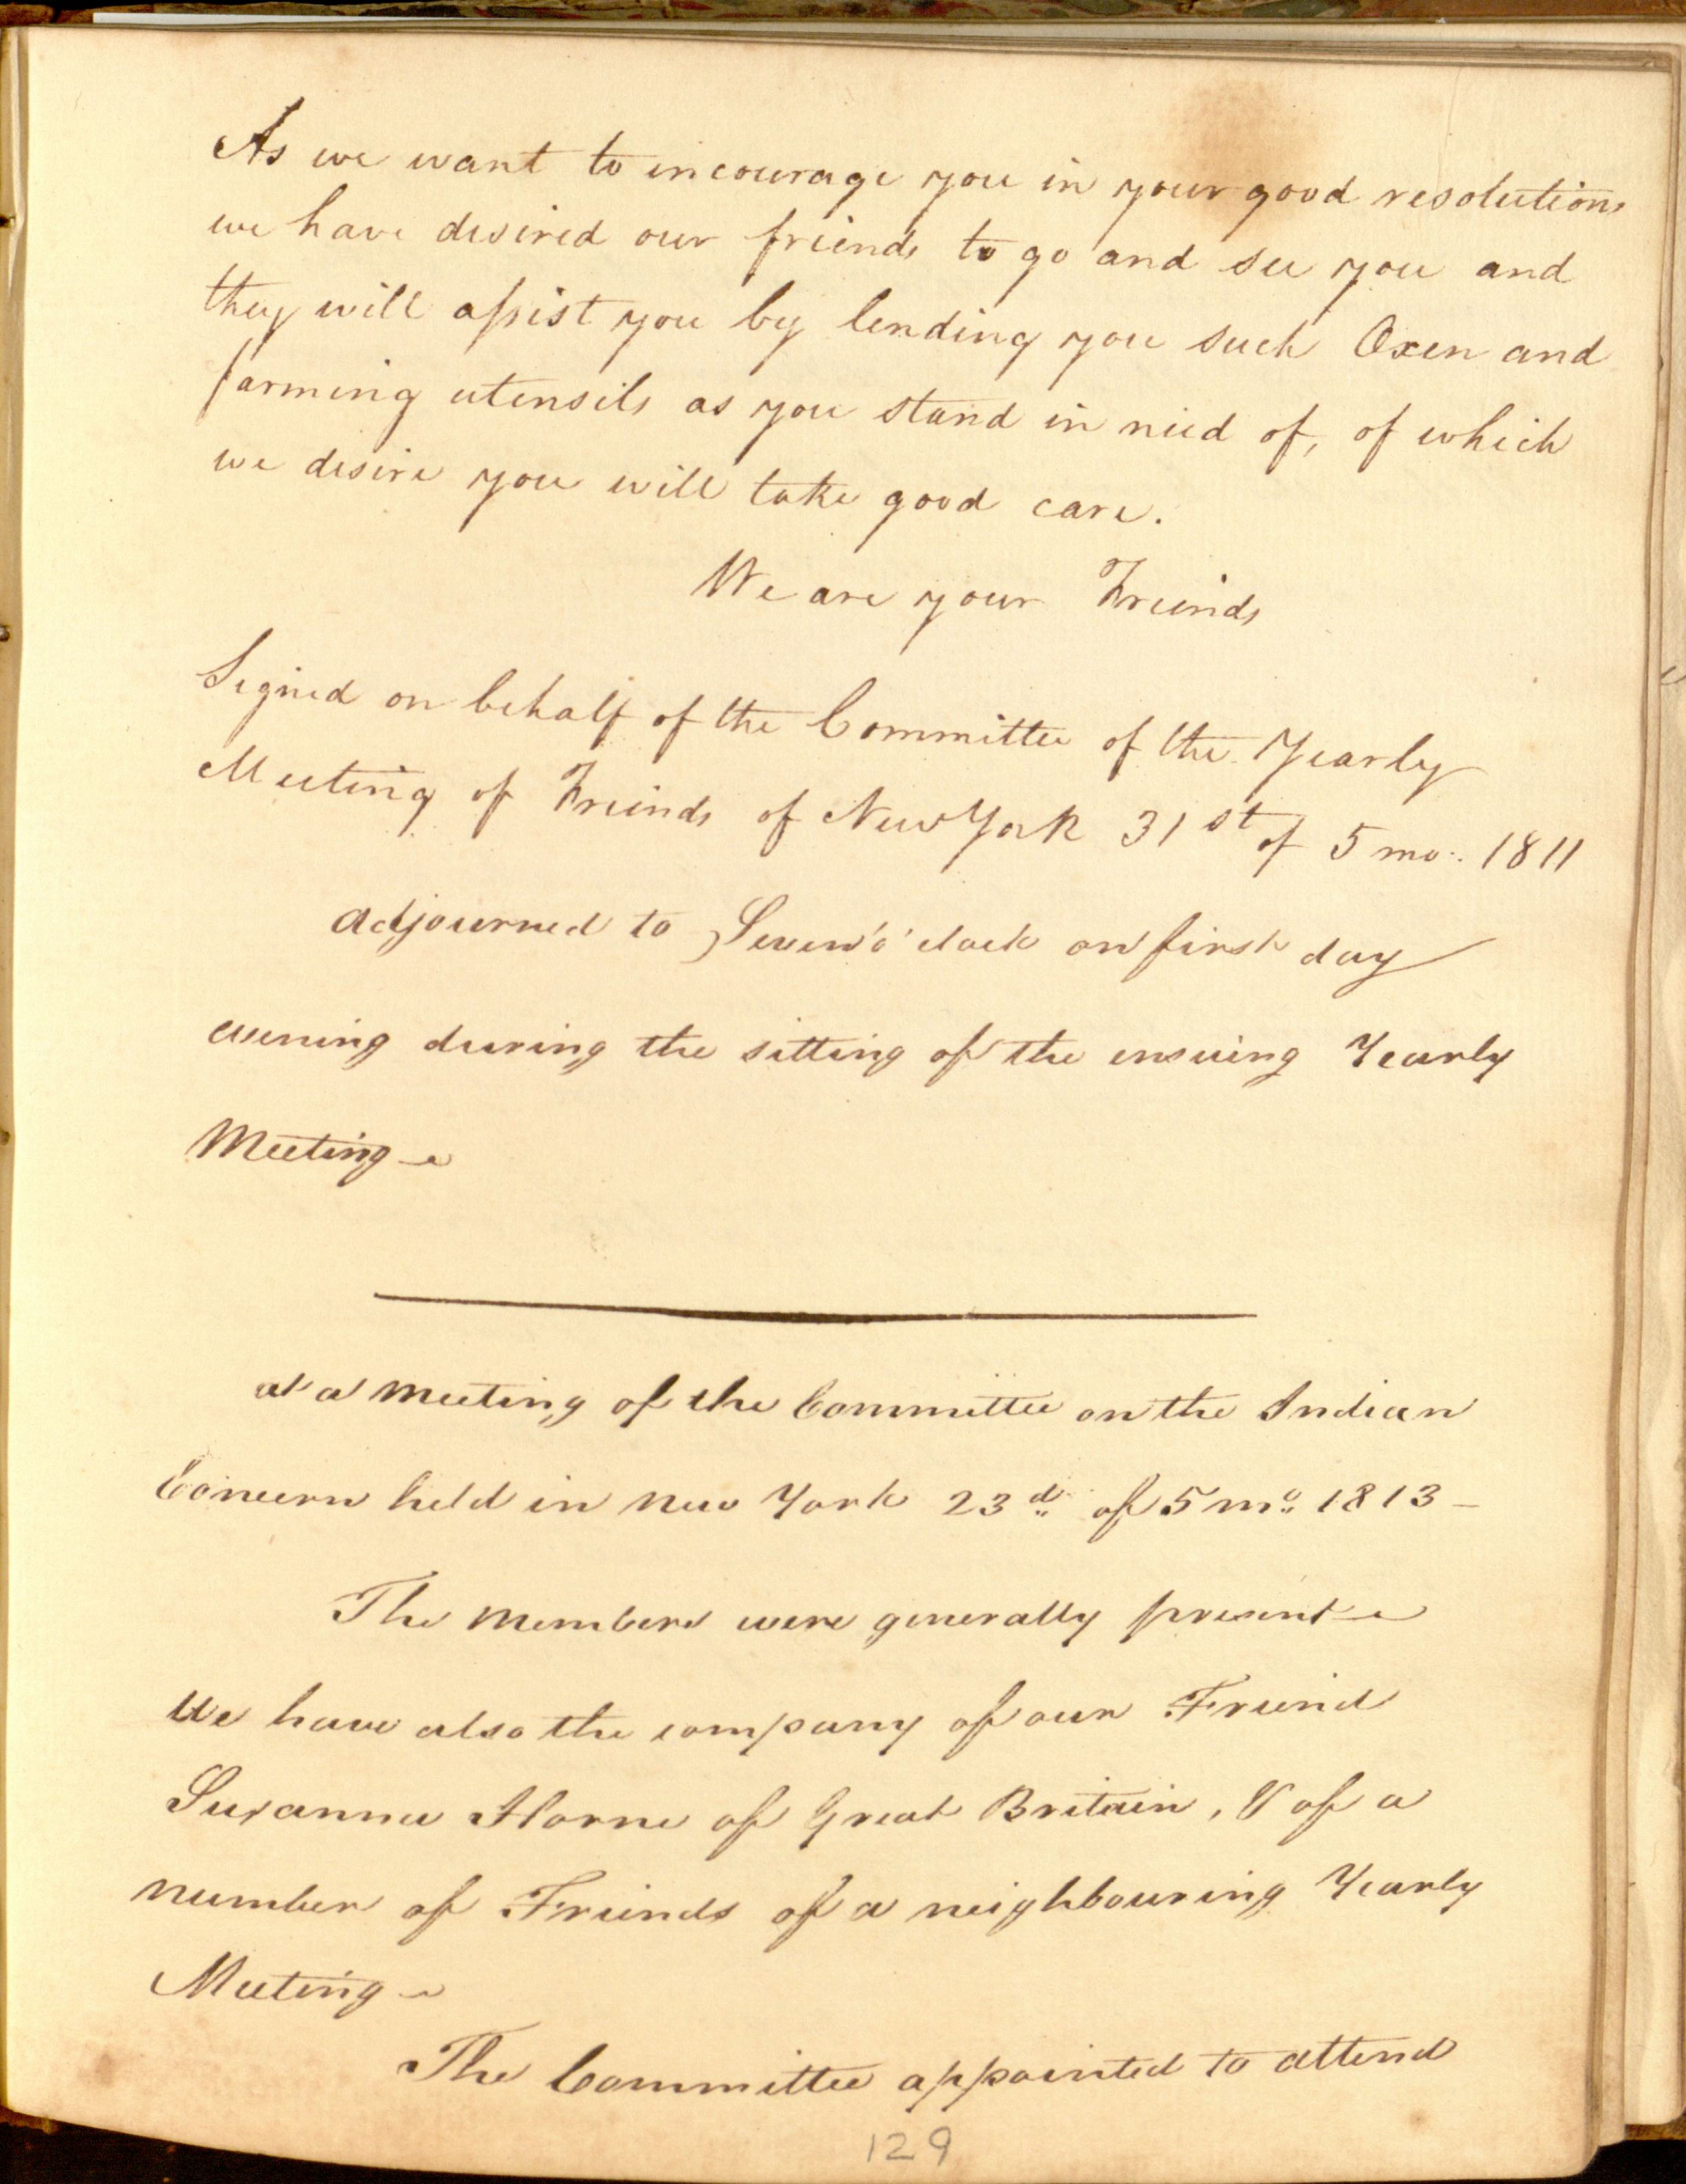 As we want to incourage you in your good resolutions
we have desired our friends to go and see you and
they will assist you by lending you such Oxen and
farming utensils as you stand in need of, of which
we desire you will take good care.
We are your Friends
Signed on behalf of the Committee of the Yearly
Meeting of Friends of New York 31st of 5 mo. 1811
adjourned to Seven o'clock on first day
evening during the sitting of the ensuing Yearly
Meeting
at a meeting of the Committee on the Indian
Concern held in New York 23d of 5 mo 1813 -
The members were generally present
We have also the company of our Friend
Susanna Horne of Great Britain, & of a
number of Friends of a neighbouring Yearly
Meeting
The Committee appointed to attend
129